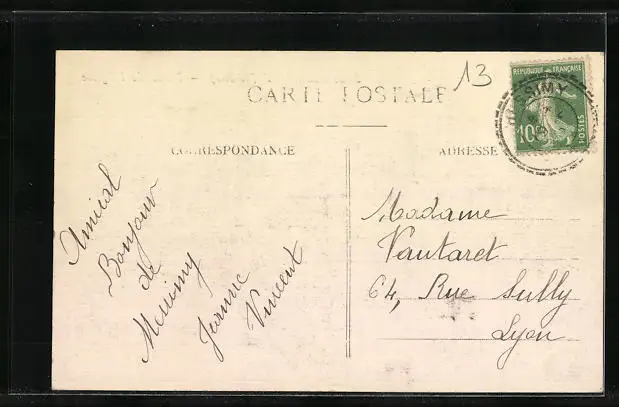 13
CARTE POSTALE
CORRESPONDANCE
ADRESSE
REPUBLIQUE FRANÇAISE
10
POSTES
Amical
Bonjour
de
Messimy
Jeanne
Vincent
Madame
Vautaret
64, Rue Sully
Lyon